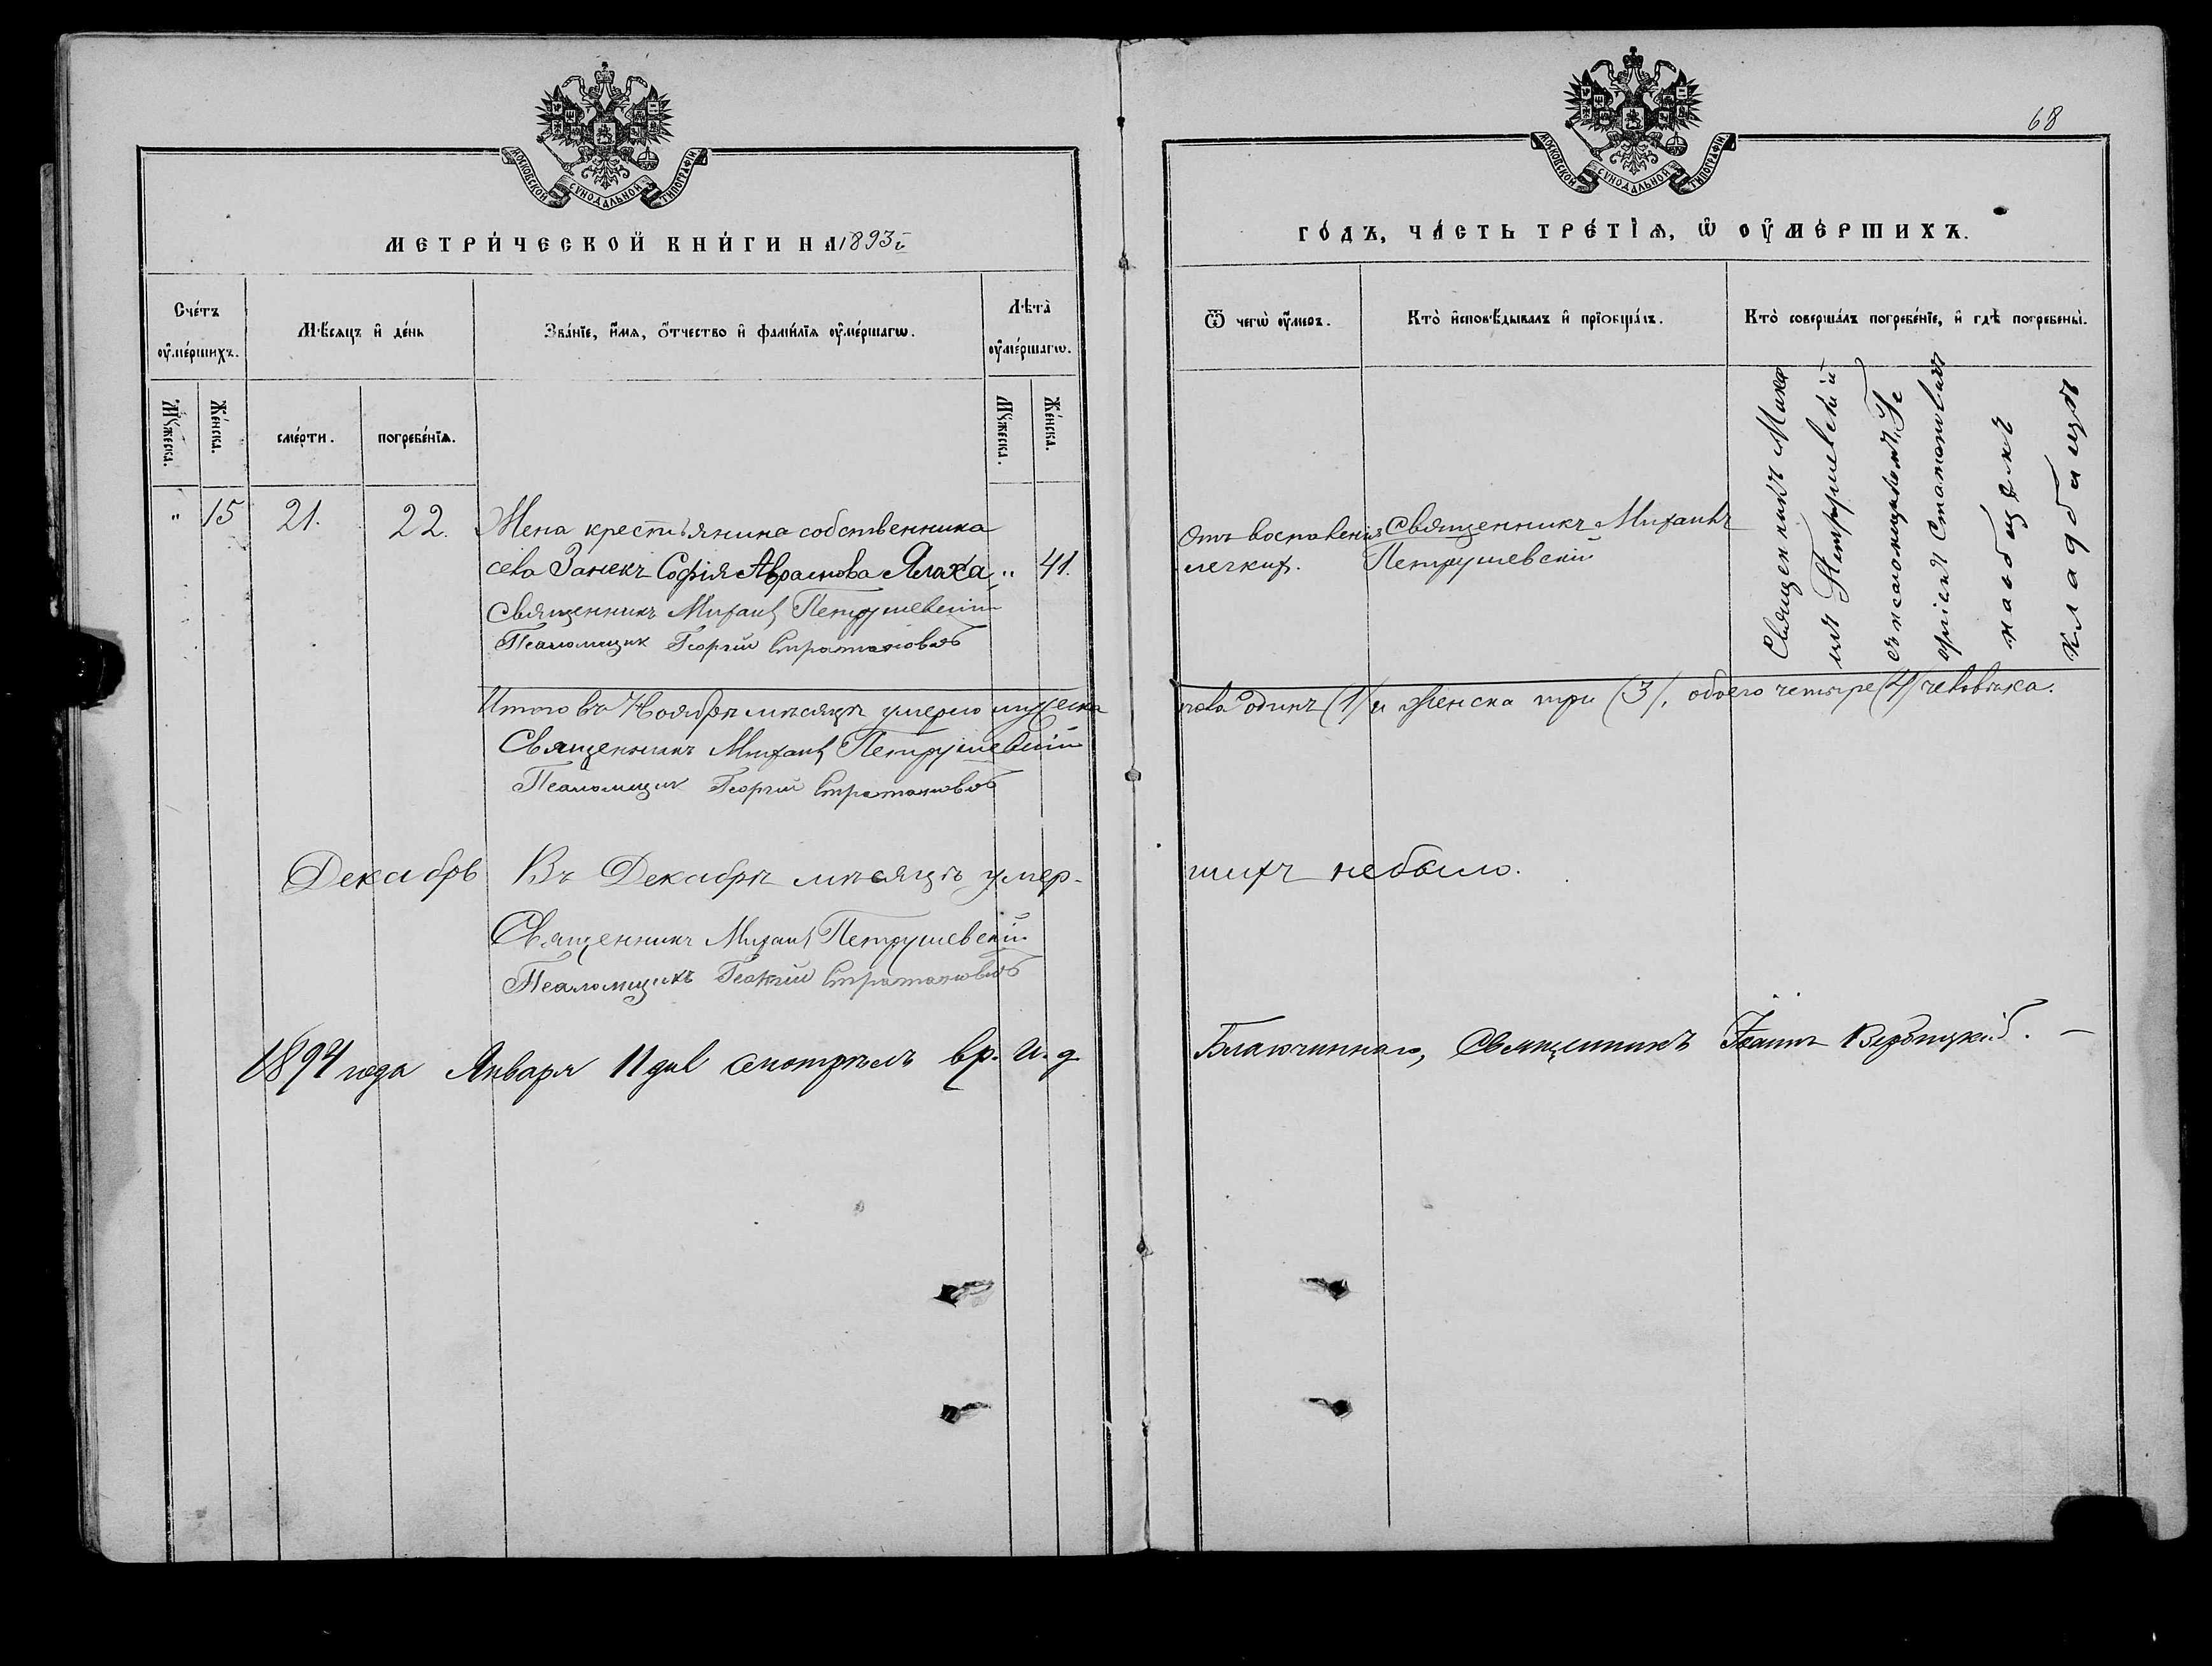 МОСКОВСКОЙ СѴНОДАЛЬНОЙ ТИПОГРАФІИ
МЕТРИ́ЧЕСКОЙ КНИ́ГИ НА 1893 й
Сче́тъ ᲂу҆ме́ршихъ.
Мѣ́сяцъ и҆ де́нь
Зва́нїе, и҆́мя, ѻ҆́тчество и҆ фами́лїя ᲂу҆ме́ршагѡ.
Лѣ́та ᲂу҆ме́ршагѡ.
Мꙋ́жеска.
Же́нска.
сме́рти.
погребе́нїѧ.
Мꙋ́жеска.
Же́нска.
" 15 21. 22. Жена крестьянина собственника
села Занекъ Софія Авраамова Ялоха " 41.
Священникъ Михаил Петрушевскій
Псаломщик Георгий Стратоновичъ
Итого въ Ноябрѣ мѣсяцѣ умерло мужеска
Священникъ Михаил Петрушевскій
Псаломщик Георгий Стратоновичъ
Декабрь Въ Декабрѣ мѣсяцѣ умер-
Священникъ Михаил Петрушевскій
Псаломщикъ Георгий Стратоновичъ
1894 года Января 11 дня смотрѣлъ вр. и. д.
68
МОСКОВСКОЙ СѴНОДАЛЬНОЙ ТИПОГРАФІИ
ГО́ДЪ, ЧА́СТЬ ТРЕ́ТЇѦ, Ѡ҆ ОУ҆МЕ́РШИХЪ.
Ѿ чегѡ̀ ᲂу҆́меръ.
Кто̀ и҆сповѣ́дывалъ и҆ прїобща́лъ.
Кто̀ соверша́лъ погребе́нїе, и҆ гдѣ̀ погребены̀.
Отъ воспаленія
легких.
Священникъ Михаилъ
Петрушевскій
Священникъ Миха
илъ Петрушевскій
съ псаломщикомъ Ге
оргіемъ Стратоновичъ
на общемъ
кладбищѣ
пола одинъ (1) и женска три (3), обоего четыре (4) человѣка.
шихъ небыло.
Благочиннаго, Священникъ Іоаннъ Вербицкій. —